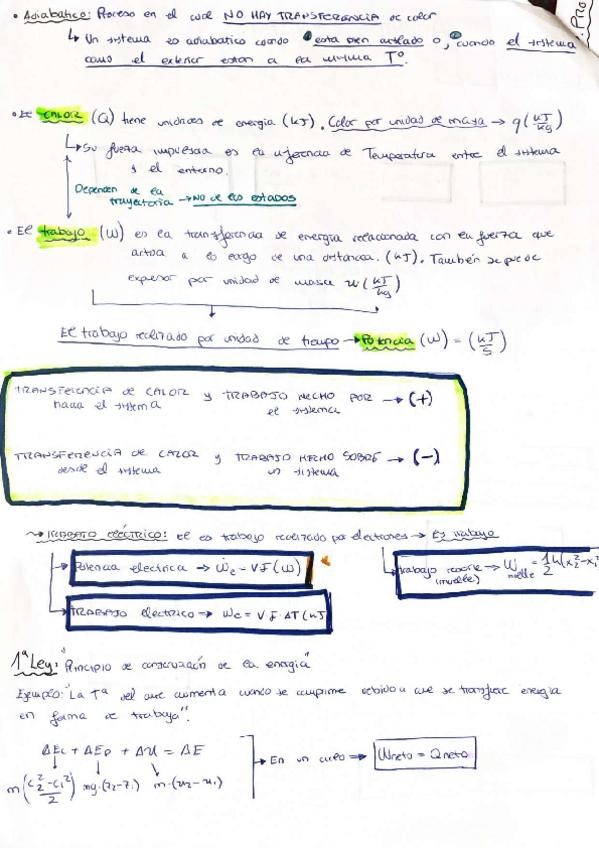 • Adiabático: Proceso en el cual NO HAY TRANSFERENCIA de calor
↳ Un sistema es adiabatico cuando esta bien aislado o, cuando el sistema
como el exterior estan a la misma Tº.
Pro
• El CALOR (Q) tiene unidades de energia (kJ). Calor por unidad de masa → q (kJ/kg)
↳ Su fuerza impulsora es la diferencia de Temperatura entre el sistema
y el entorno.
Dependen de la
trayectoria → NO de los estados
• El trabajo (W) es la transferencia de energia relacionada con la fuerza que
actua a lo largo de una distancia. (kJ). También se puede
expresar por unidad de masa w (kJ/kg)
El trabajo realizado por unidad de tiempo → Potencia (W) = (kJ/s)
TRANSFERENCIA de CALOR y TRABAJO HECHO POR → (+)
hacia el sistema el sistema
TRANSFERENCIA DE CALOR y TRABAJO HECHO SOBRE → (-)
desde el sistema un sistema
↝ TRABAJO ELÉCTRICO: el es trabajo realizado por electrones → Es trabajo
Potencia electrica → Ẇe - VI (W)
trabajo resorte → W muelle = 1/2 k(x₂²-x₁²
(muelle)
TRABAJO electrico → We = VI·ΔT (kJ
1ª Ley: "Principio de conservación de la energía"
Ejemplo: "La Tª del aire aumenta cuando se comprime debido a que se transfiere energia
en forma de trabajo".
ΔEc + ΔEp + ΔU = ΔE
→ En un ciclo → Wneto = Qneto
m(c₂²-c₁²/2) mg·(z₂-z₁) m·(u₂-u₁)